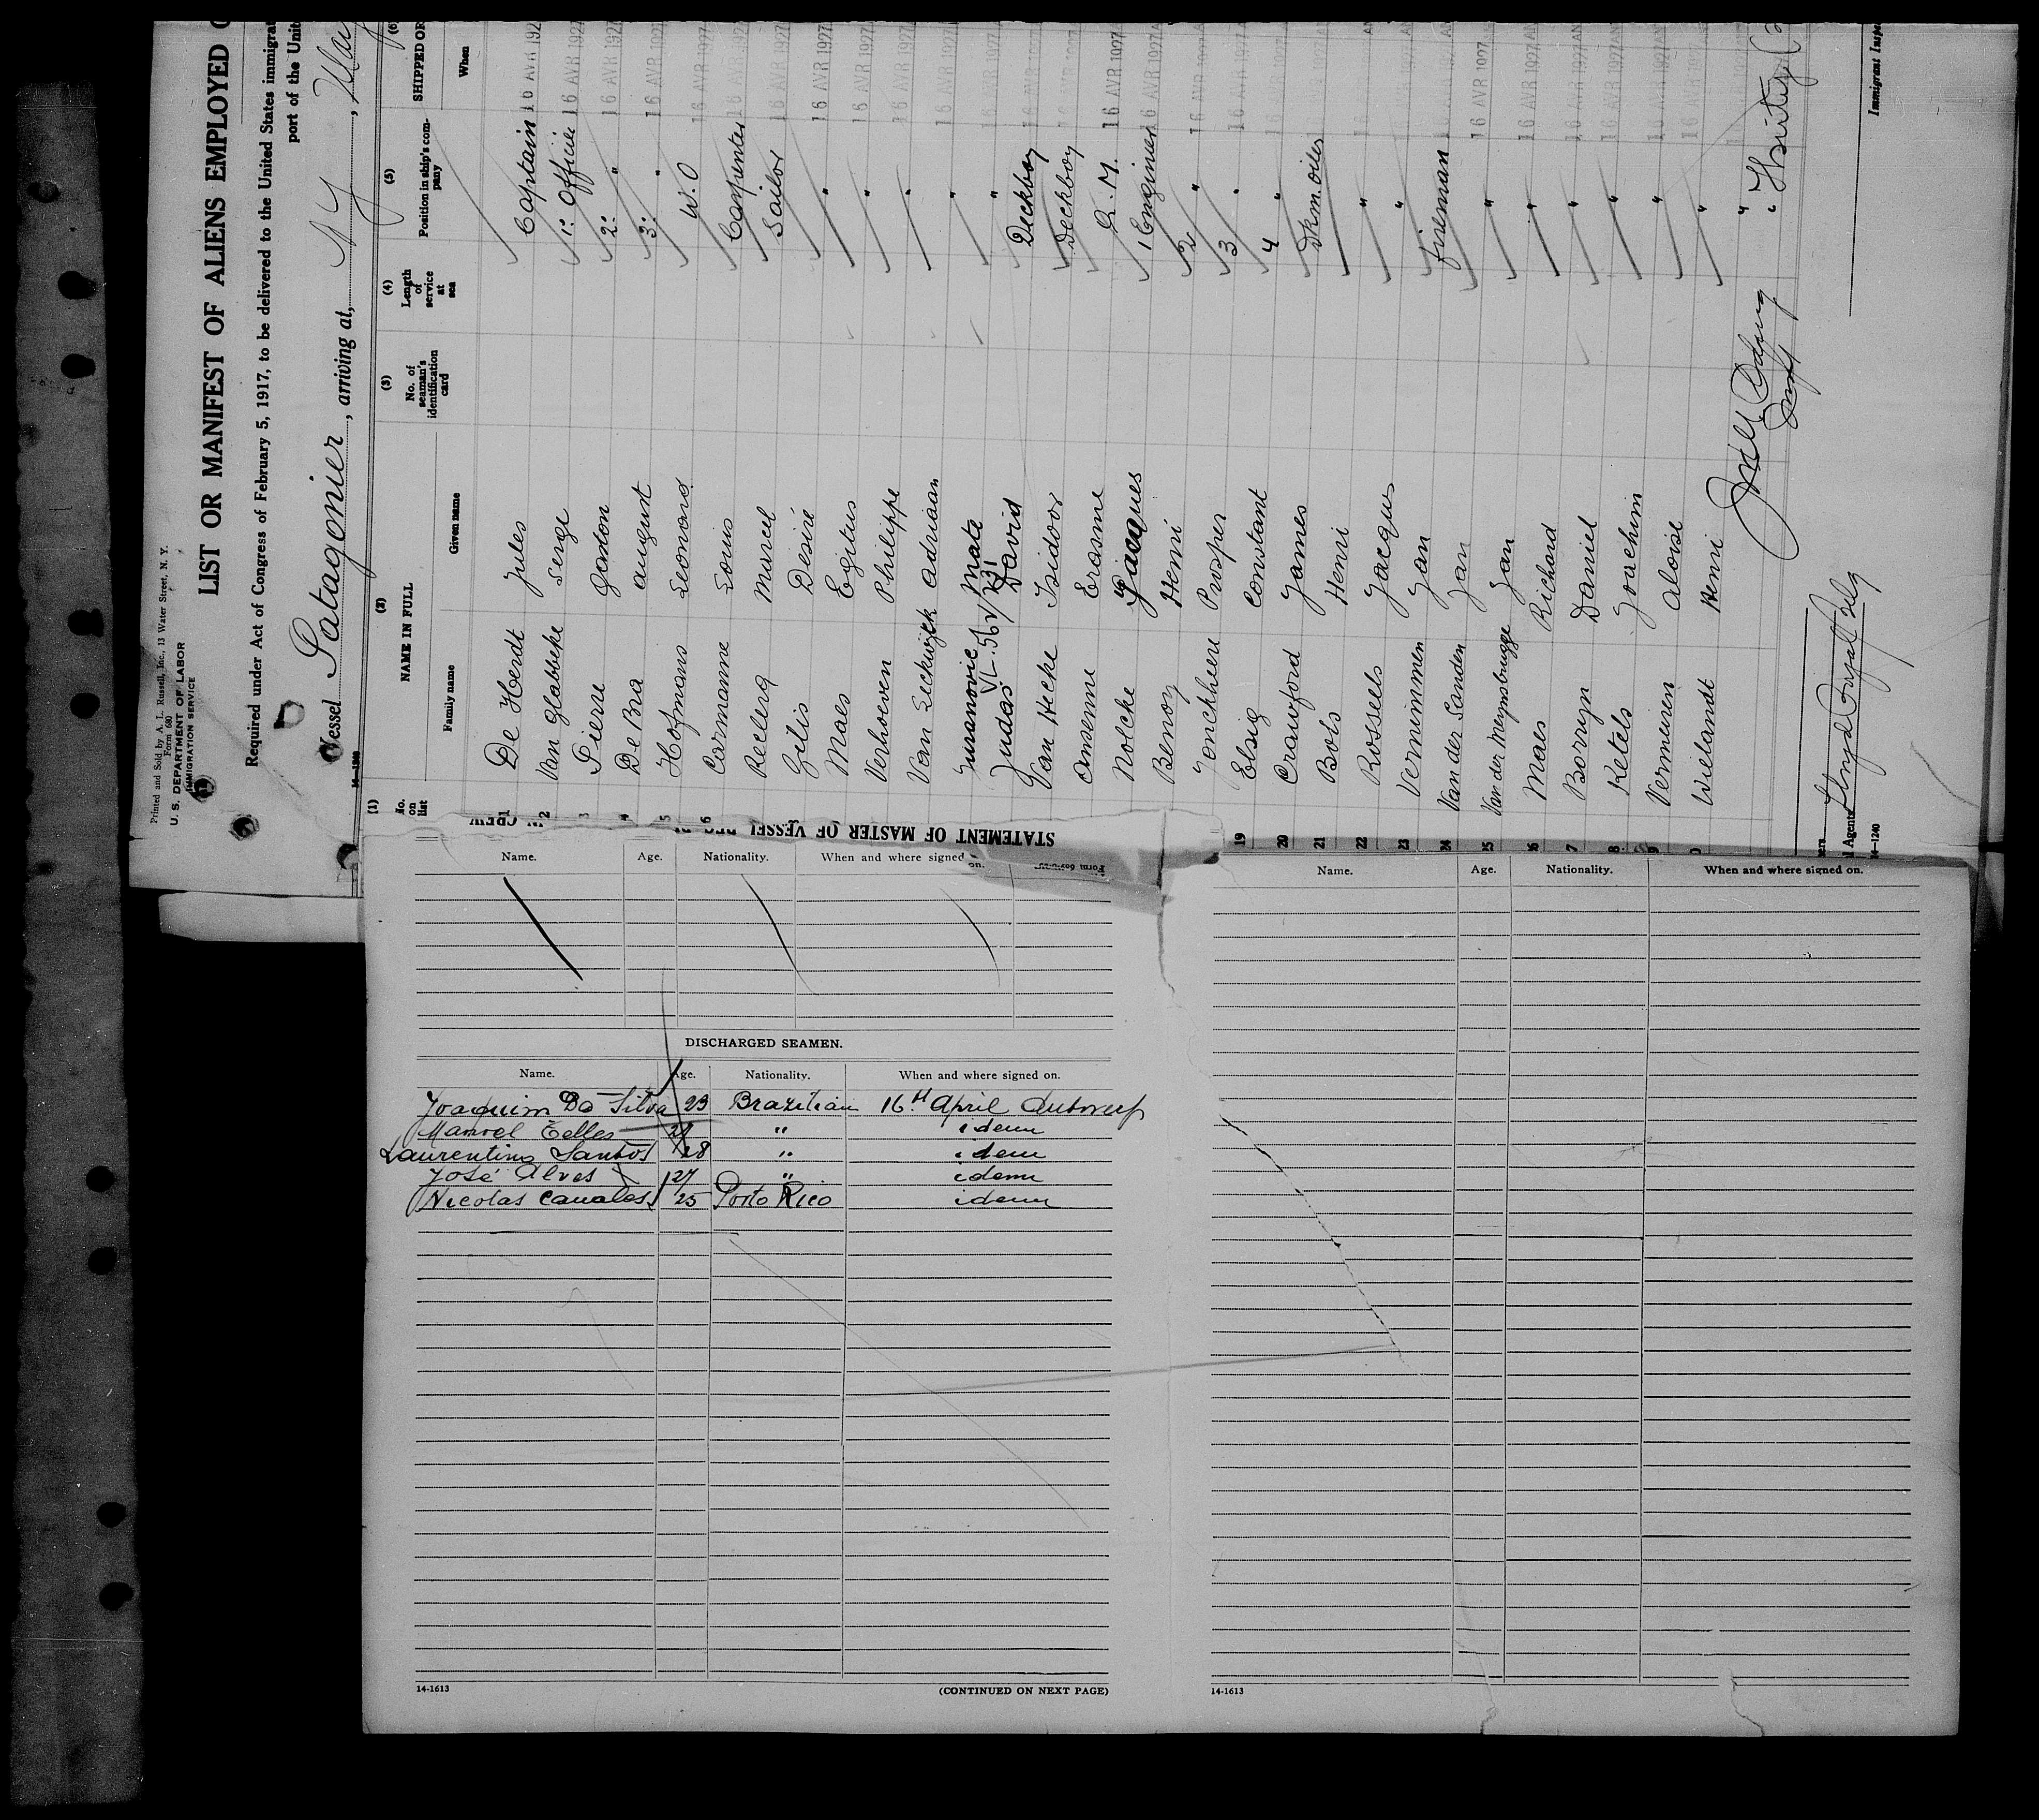 Printed and Sold by A. L. Russell, Inc., 13 Water Street, N. Y.
Form 680
U. S. DEPARTMENT OF LABOR
IMMIGRATION SERVICE
LIST OR MANIFEST OF ALIENS EMPLOYED
Required under Act of Congress of February 5, 1917, to be delivered to the United States immigrat
port of the Unit
Vessel Patagonier, arriving at, N Y,
14-1240
(1) (2) (3) (4) (5) (6)
No. on list NAME IN FULL No. of seaman's identification card Length of service at sea Position in ship's company SHIPPED OR
Family name Given name When
1 De Herdt Jules Captain 16 AVR 192
2 Van Glabbeke Serge 1: Officier 16 AVR 1927
3 Pierre Gaston 2: " 16 AVR 1927
4 De Bra August 3: " 16 AVR 1927
5 Hofmans Leonard W. O 16 AVR 1927
6 Carmanne Louis Carpenter 16 AVR 1927
Reclerq Marcel Sailor 16 AVR 1927
Gilis Desiré " 16 AVR 1927
Maes Egitus " 16 AVR 1927
Verhoeven Philippe " 16 AVR 1927
Van Eeckwyck Adriaan " 16 AVR 1927
Mate " 16 AVR 1927
Judas David Deckboy 16 AVR 1927
Van Hecke Isidoor Deckboy 16 AVR 1927
Ansenne Erasme Q. M. 16 AVR 1927
Nolcke Jacques 1 Enginier 16 AVR 1927
Benoy Henri 2 " 16 AVR 1927
Jonckheere Prosper 3 " 16 AVR 1927
19 Elsig Constant 4 " 16 AVR 1927
20 Crawford James Dkm. oiler 16 AVR 1927
21 Bols Henri " 16 AVR 1927
22 Rossels Jacques " 16 AVR 1927
23 Vernimmen Jan fireman 16 AVR 1927
24 Van der Sanden Jan " 16 AVR 1927
25 Van der Meynsbrugge Jan " 16 AVR 1927
26 Maes Richard " 16 AVR 1927
7 Borryn Daniel " 16 AVR 1927
8 Ketels Joachim " 16 AVR 1927
9 Vermeiren Aloise " 16 AVR 1927
0 Wielandt Henri "
Agents Lloyd Royal Belg
14-1240
Immigrant Inspe
STATEMENT OF MASTER OF VESSEL
Name. Age. Nationality. When and where signed on.
DISCHARGED SEAMEN.
Name. Age. Nationality. When and where signed on.
Joaquim Da Silva 23 Brazilian 16th April Antwerp
Manoel Telles " idem
Laurentino Santos 28 " idem
José Alves 27 " idem
Nicolas Canales 25 Porto Rico idem
14-1613
(CONTINUED ON NEXT PAGE)
Name. Age. Nationality. When and where signed on.
14-1613